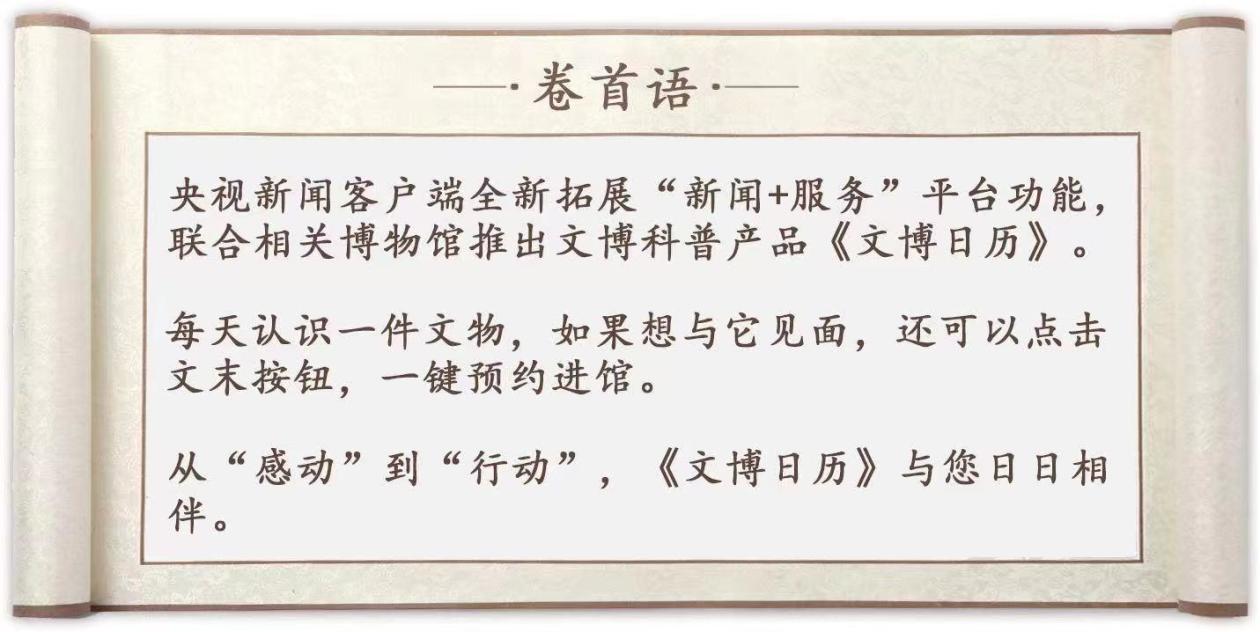 卷首语
央视新闻客户端全新拓展“新闻+服务”平台功能，
联合相关博物馆推出文博科普产品《文博日历》。
每天认识一件文物，如果想与它见面，还可以点击
文末按钮，一键预约进馆。
从“感动”到“行动”，《文博日历》与您日日相
伴。